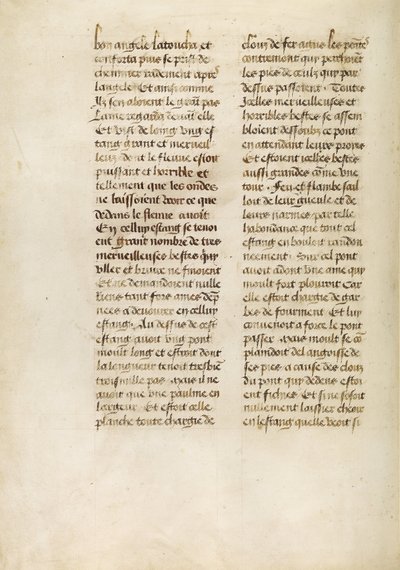 bon angele latoucha et
conforta puis se prist de
cheminer radement apres
langele Et ainsi comme
Ilz sen aloient le grant pas
Lame regarda deuant elle
Et vist de loing vng es
tang grant et merueil
leux dont le fleuue estoit
puissant et horrible et
tellement que les ondes
ne laissoient veoir ce que
dedans le fleuue auoit
En celluy estang se tenoi
ent grant nombre de tres
merueilleuses bestes quy
vller et bruire ne finoient
Et ne demandoient nulle
riens tant fors ames dep
nees a deuourer en celluy
estang Au dessus de cest
estang auoit vng pont
moult long et estroit dont
la longueur tenoit tresbien
trois mille pas Mais il ne
auoit que vne paulme en
largeur Et estoit celle
planche toute chargie de
clouz de fer agus les pointes
contremont quy perchoient
les pies de ceulz quy par
dessus passoient Toutes
Icelles merueilleuses et
horribles bestes se assem
bloient dessoubz ce pont
en attendant leurs proies
Et estoient icelles bestes
aussi grandes comme vne
tour Feu et flambe sail
loit de leur gueule et de
leurs narines par telle
habondance que tout cel
estang en bouloit randon
neement Sur cel pont
auoit adont vne ame quy
moult fort plouroit Car
elle estoit chargie de gar
bes de fourment Et luy
conuenoit a force le pont
passer Mais moult se co
plaindoit del angoisse de
ses pies a cause des clouz
du pont quy dedens estoi
ent fichies Et si ne osoit
nullement laissier cheoir
en lestang quelle veoit si